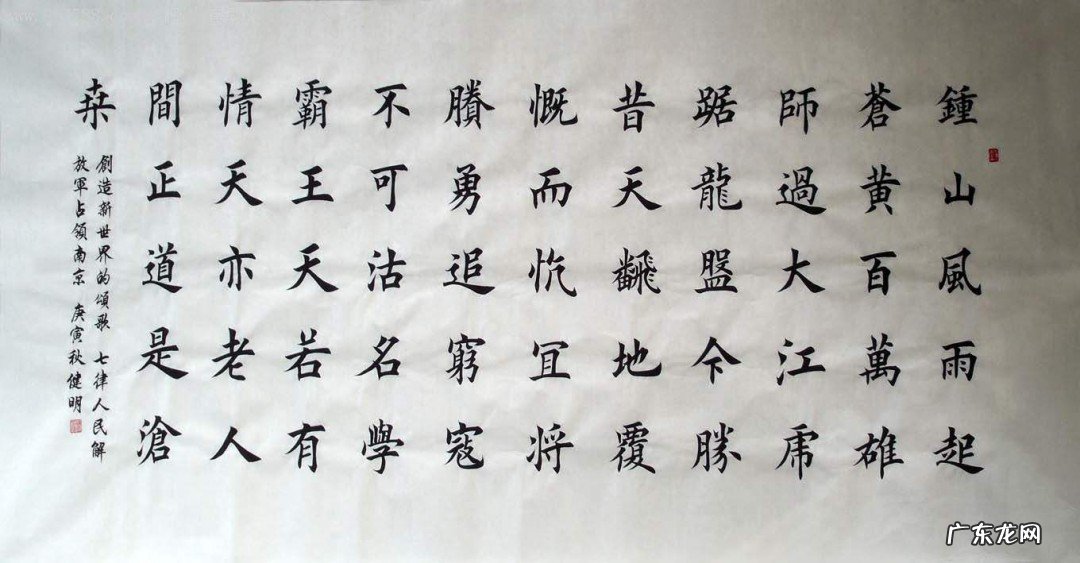 鍾山風雨起
蒼黄百萬雄
師過大江虎
踞龍盤今勝
昔天飜地覆
慨而忼宜将
賸勇追窮寇
不可沽名學
霸王天若有
情天亦老人
間正道是滄
桒
創造新世界的頌歌 七律人民解
放軍占領南京 庚寅秋健明
广东龙网